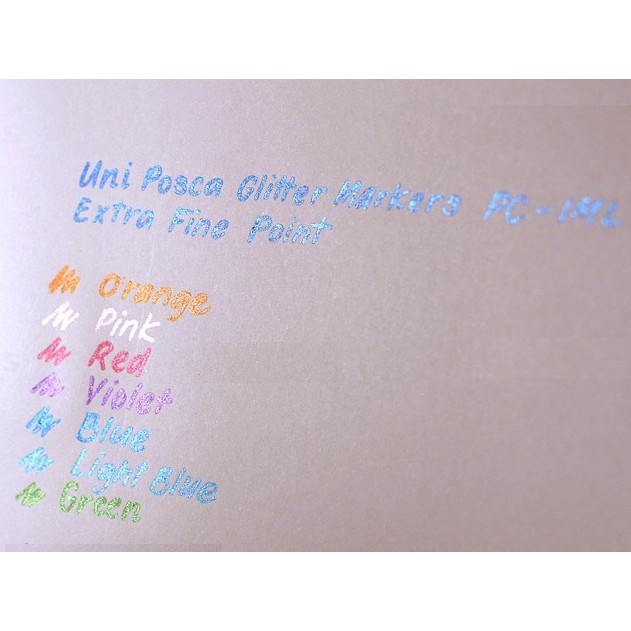 Uni Posca Glitter Markers PC-1ML
Extra Fine Point
Orange
Pink
Red
Violet
Blue
Light Blue
Green